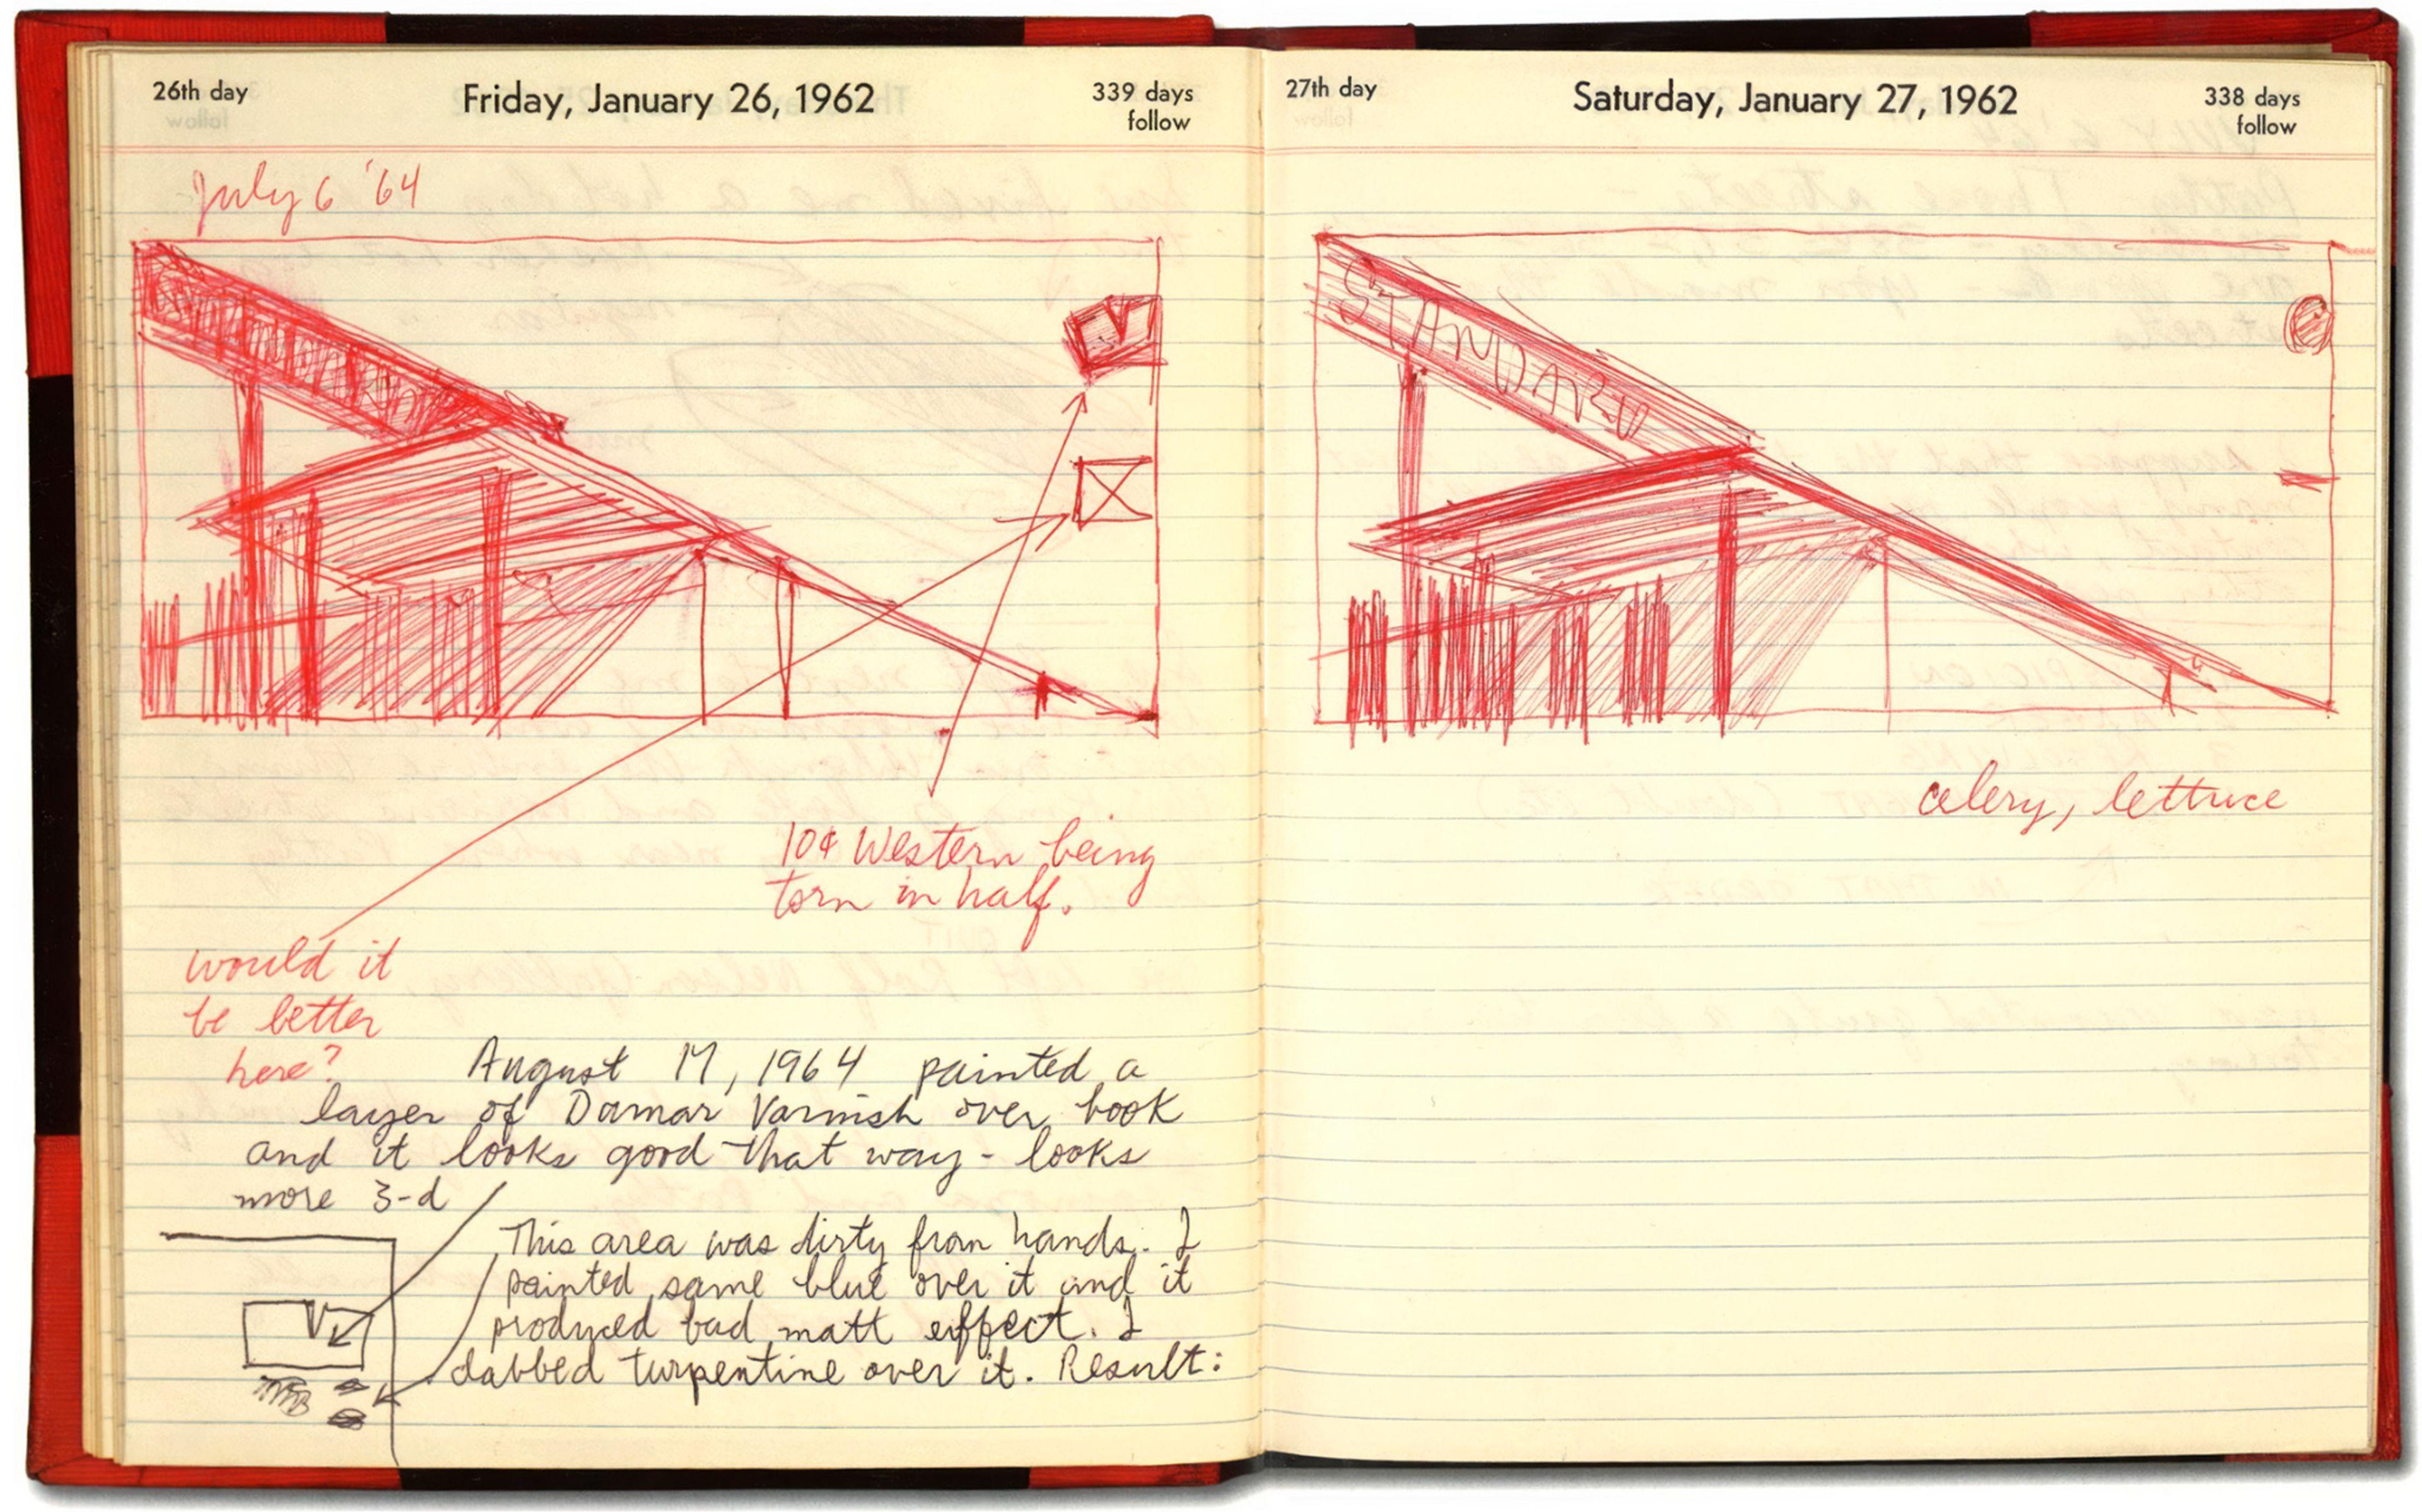 26th day
Friday, January 26, 1962
339 days
follow
July 6 '64
STANDARD
10¢ Western being
torn in half.
would it
be better
here?
August 17, 1964 painted a
layer of Damar Varnish over book
and it looks good that way - looks
more 3-d
This area was dirty from hands. I
painted same blue over it and it
produced bad matt effect. I
dabbed turpentine over it. Result:
27th day
Saturday, January 27, 1962
338 days
follow
STANDARD
celery, lettuce